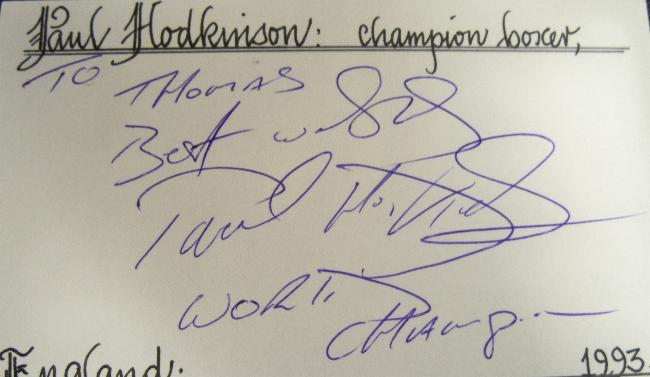 Paul Hodkinson: champion boxer,
TO THOMAS
Best wishes
Paul Hodkinson
WORLD
CHAMP.
England: 1993.